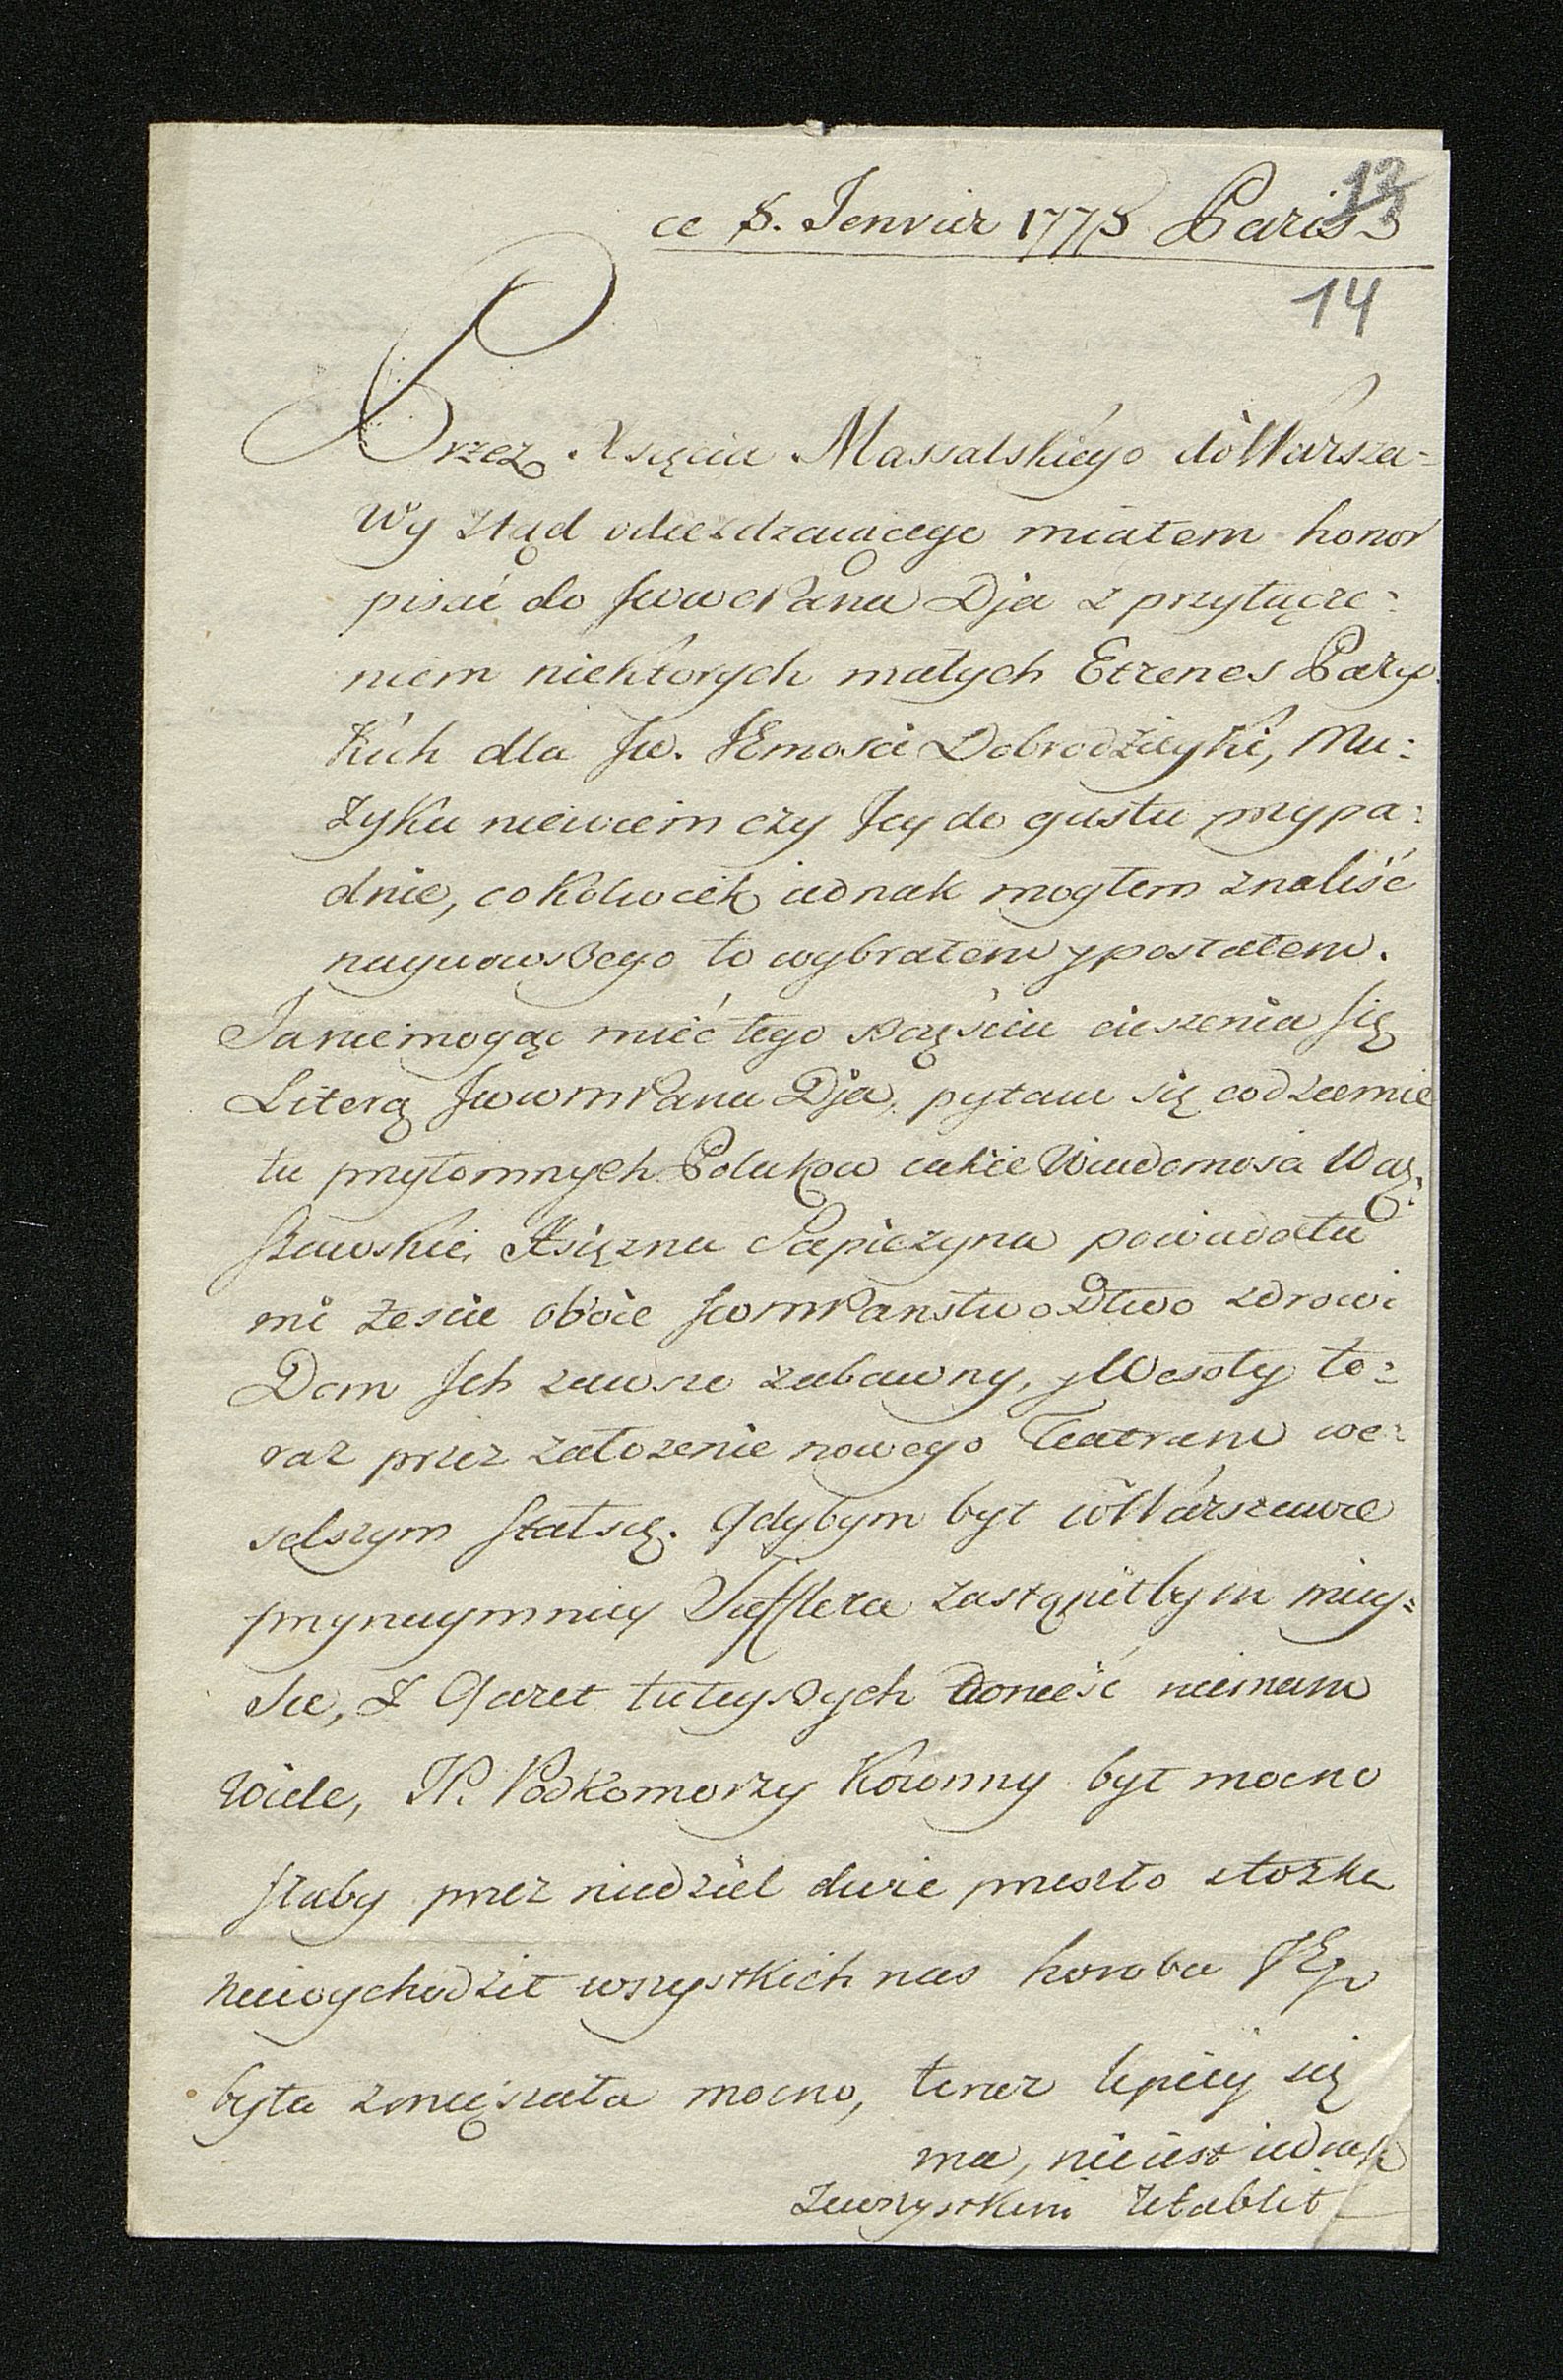 13
ce 5. Jenvier 1775 Paris
14
Przez Xsięcia Massalskiego do Warsza=
wy ztąd odiezdzaiącego miałem honor
pisać do Jww Pana Dja z przyłącze=
niem niektorych małych Etrenes Pary
kich dla Jw. JEmości Dobrodzieyki, Mu=
zyka niewiem czy Jey do gustu przypa=
dnie, cokolwiek iednak mogłem znaliść
naynowszego to wybrałem y posłałem.
Ja niemogąc mieć tego szczęścia cieszenia się
Literą JwwmPana Dja, pytam się codziennie
tu przytomnych Polakow iakie Wiadomości War=
szawskie, Xsiężna Sapieżyna powiadała
mi żeście oboie JwmPanstwo Dtwo zdrowi
Dom Ich zawsze zabawny, y Wesoły te=
raz przez założenie nowego Teatrum we=
selszym stał się. Gdybym był w Warszawie
przynaymniey Sufflera zastąpiłbym miey=
sce, Z Gazet tuteyszych donieść niemam
wiele, JP. Podkomorzy Koronny był mocno
słaby przez niedziel dwie przeszło z łożka
niewychodził wszystkich nas horoba JEgo
była zmięszała mocno, teraz lepiey się
ma, nieiest iednak
zewszystkim retablit